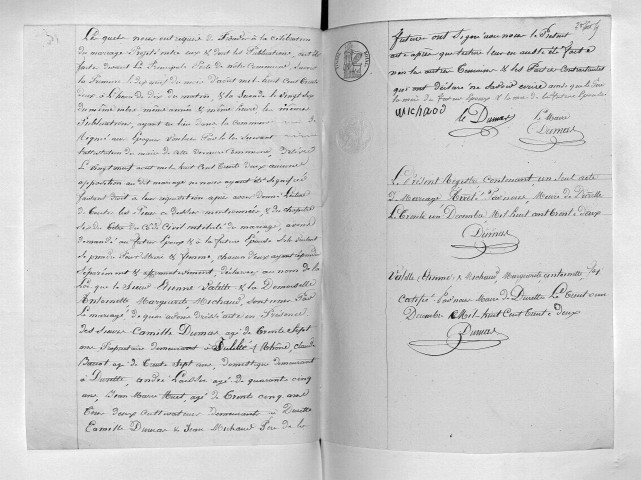 Le quel nous ont requis de procéder à la célébration
du mariage projetté entre eux & dont les Publications ont été
faite devant la Principale Porte de notre Commune savoir
la Premiere le dix neuf du mois D'août mil huit Cent Trente
deux à l'heure de Dix du matin, & la Seconde le Vingt Six
du même mois même année & même heure les mêmes
Publications ayant eu lieu dans la Commune de
l'attestation du maire de cette derniere Commune, Délivré
Le Vingt neuf août mil huit Cent Trente deux aucune
opposition au dit mariage ne nous ayant été Signifiée
faisant droit à leur requisition après avoir donné lecture
de Toutes les Pieces ci dessus mentionnées, & du chapitre
Six du titre du Code Civil intitulé du mariage, avons
demandé au futur Epoux & à la future Epouse s'ils veulent
se prendre Pour Mari & Femme, chacun d'eux ayant répondu
séparément & affirmativement, déclarons au nom de la
Loi que le Sieur Etienne Valette & la Demoiselle
Antoinette Marguerite Michaud, Sont unis Par
Le mariage de quoi avons dressé acte en Présence
des Sieurs Camille Dumas agé de Trente Sept
ans Propriétaire demeurant à (Rhône), Claude
agé de Trente Sept ans, domestique demeurant
à Durette, andré agé de quarante cinq
ans, Jean Marie Huet, agé de Trente cinq ans
Tous deux cultivateurs demeurants à Durette
Camille Dumas & Jean Michaud Pere de la
future ont Signé avec nous le Présent
acte après que lecture leur en a été faite
non les autres Témoins & les Parties Contractantes
qui ont déclaré ne Savoir écrire ainsi que le
Pere du futur Epoux & la mere de la future Epouse
MICHAOD
C. Dumas Le Maire
Dumas
Le Présent Registre contenant un Seul acte
de Mariage Arrêté Par nous, Maire de Durette
Le Trente un Décembre Mil huit cent Trente deux
Dumas
Valette Etienne & Michaud, Marguerite antoinette,
Certifié Par nous Maire de Durette Le Trente un
Décembre Mil huit Cent Trente deux
Dumas